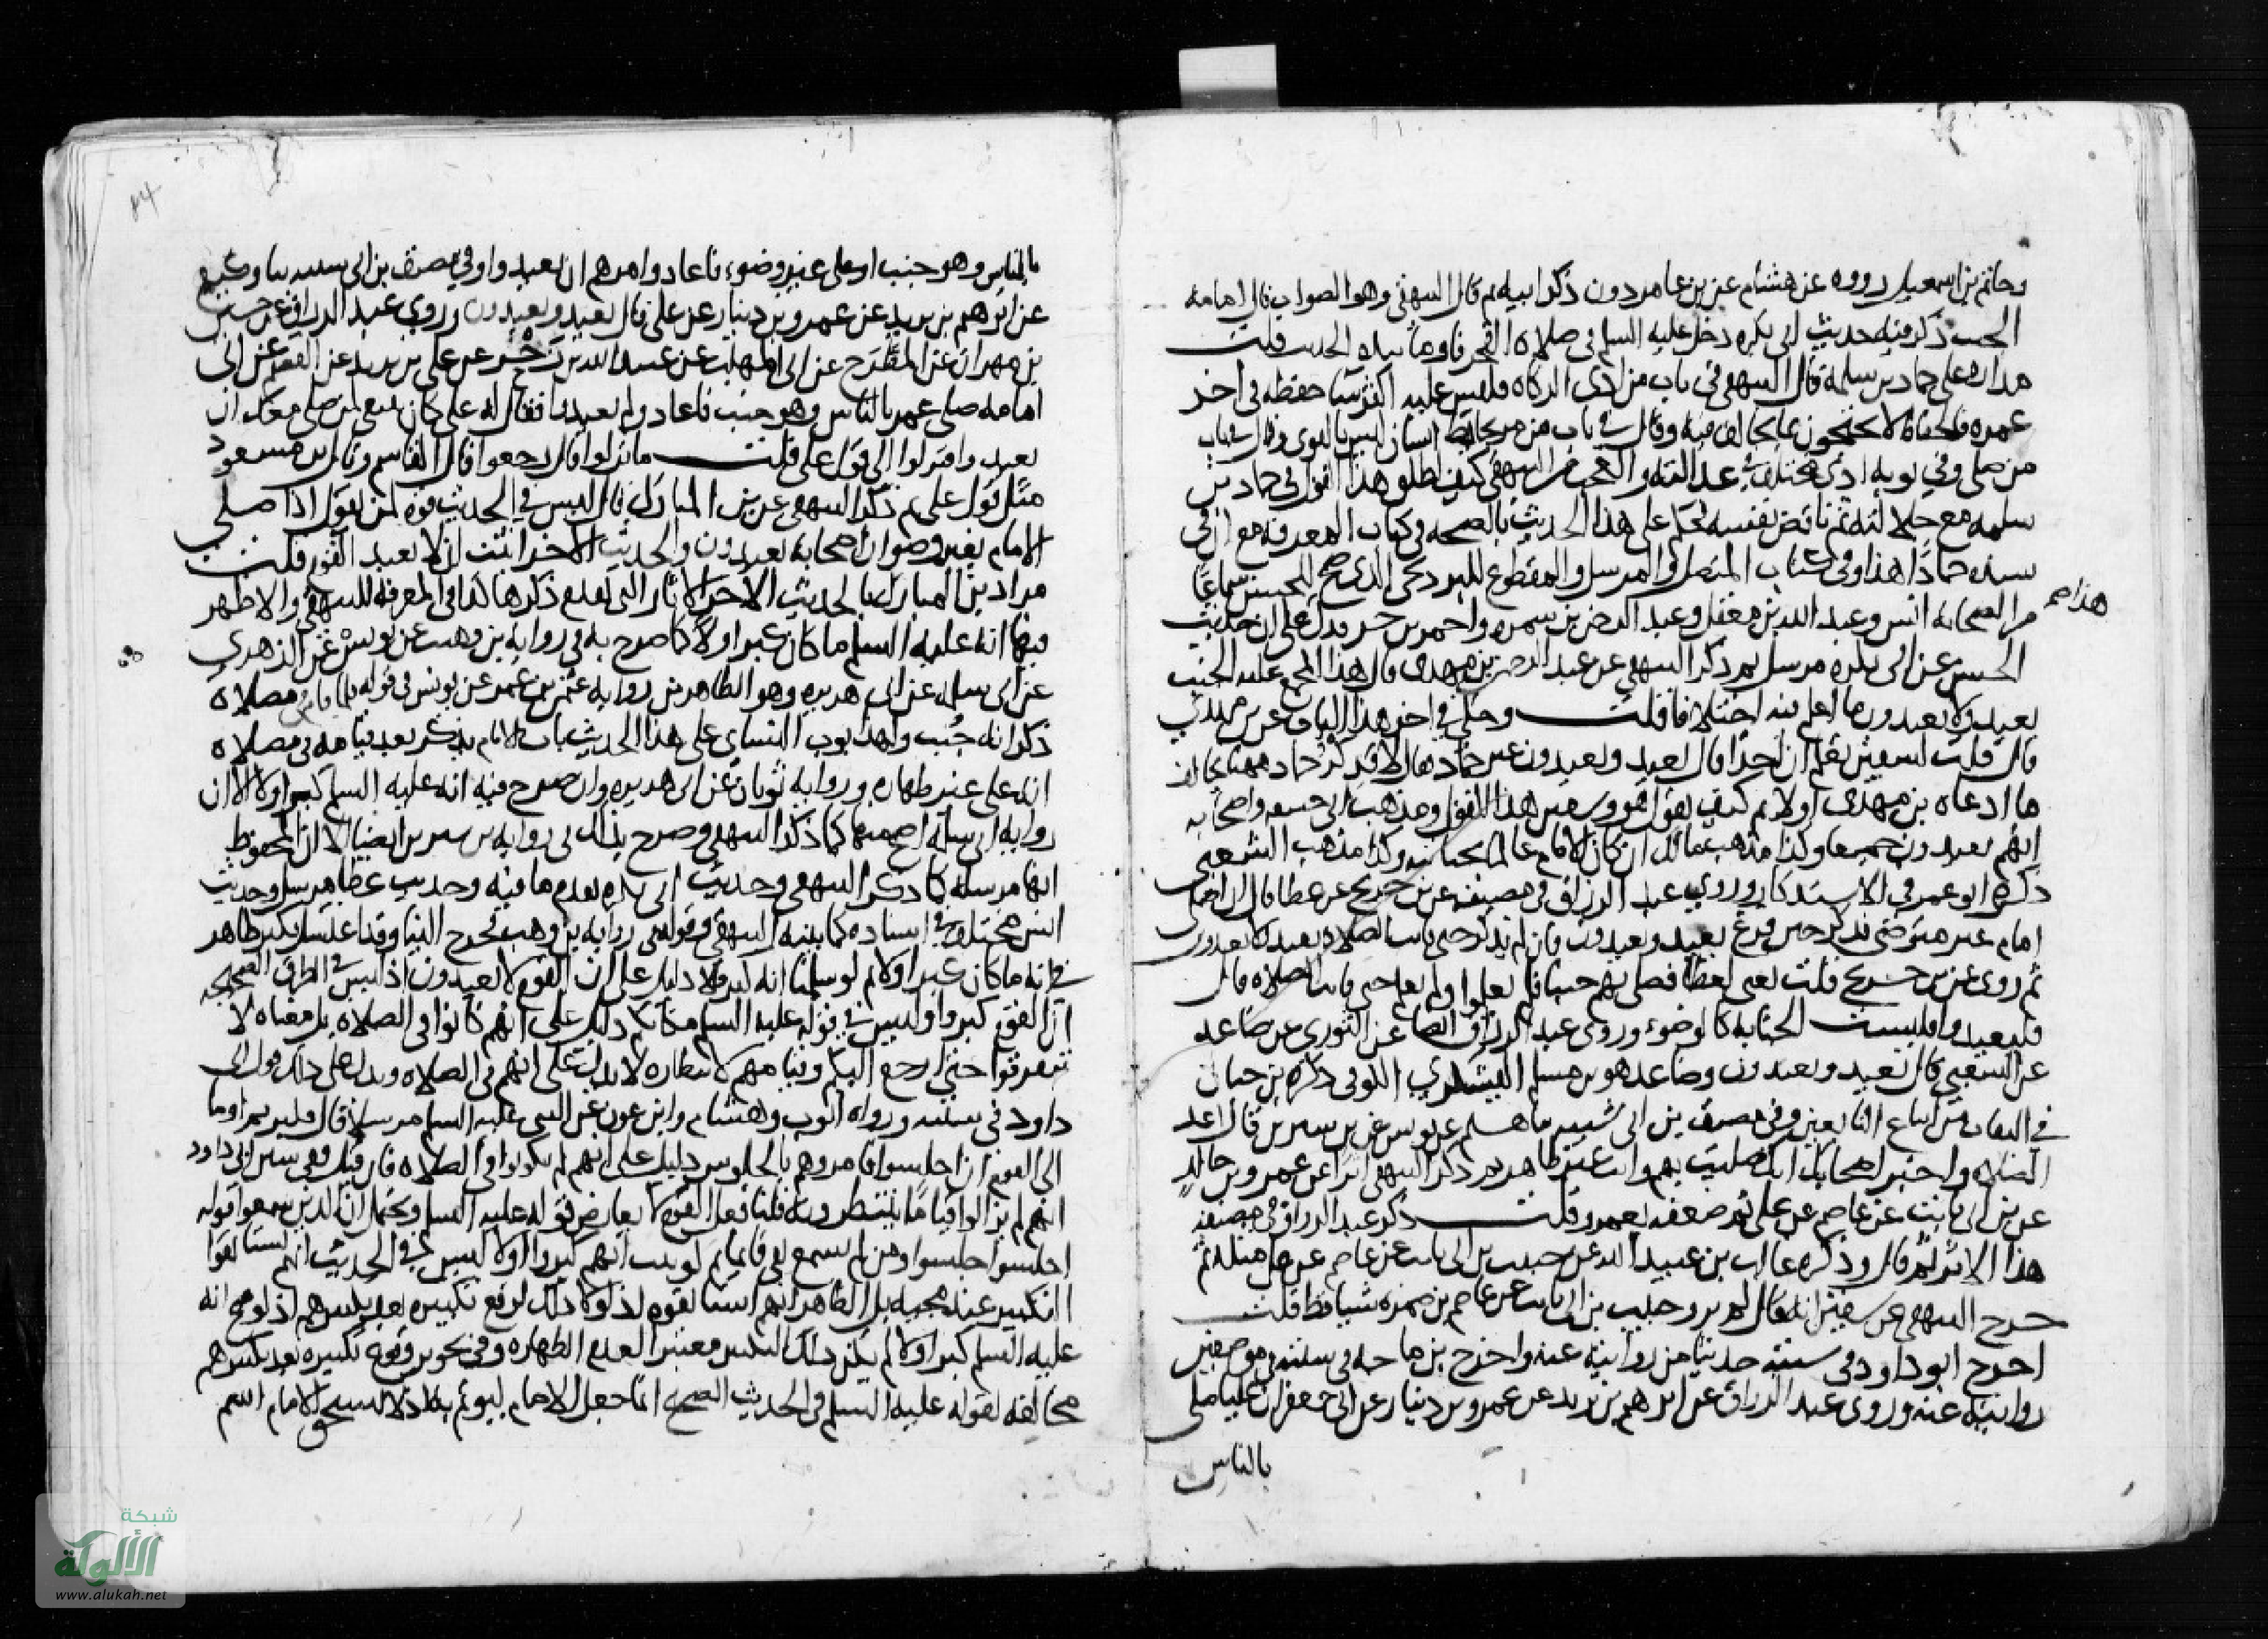 وحاتم بن اسمعيل رووه عن هشام عن بن عامر دون ذكر ابيه ثم قال البيهقى وهو الصواب قال امامه
الجنب ذكر فيه حديث ابى بكره دخل عليه السلم فى صلاة الفجر فاومأ بيده الحديث قلت
مداره على حماد بن سلمة قال البيهقى فى باب من ادى الزكاه فليس عليه اكثر ساء حفظه فى اخر
عمره فالحفاظ لا يحتجون بما يخالف فيه وقال فى باب من مر بحايط انسان ليس بالقوى وقال فى باب
من صلى وفى ثوبه اذى مختلف فى عدالته والعجب من البيهقى كيف اطلق هذا القول فى حماد بن
سلمه مع جلالته ثم ناقض نفسه فحكم على هذا الحديث بالصحه فى كتاب المعرفه مع ان فى
سنده حمادًا هذا وفى كتاب المتصل والمرسل والمقطوع للبرديجى الذى صح للحسن سماعًا
هذا صح
من الصحابه انس وعبد الله بن مغفل وعبد الرحمن بن سمره واحمر بن جز فدل على ان حديث
الحسن عن ابى بكره مرسل ثم ذكر البيهقى عن عبد الرحمن بن مهدى قال هذا المجمع عليه الجنب
يعيد ولا يعيدون ما اعلم فيه اختلافا قلت وحكى فى اخر هذا الباب عن بن مهدى
قال قلت لسفين تعلم ان احدًا قال يعيد ويعيدون عن حماد قال لا قد ذكر حماد مهنا يخالف
ما ادعاه بن مهدى اولا ثم كيف يقول هو وسفين هذا القول ومذهب ابى حنيفه واصحابه
انهم يعيدون جميعا وكذا مذهب مالك ان كان الامام عالما بجنابته وكذا مذهب الشعبى
ذكره ابو عمر فى الاستذكار وروى عبد الرزاق فى مصنفه عن بن جريج عن عطا قال ان صلى
امام غير متوضئ فذكر حين فرغ يعيد ويعيدون فان لم يذكر حتى فاتت الصلاة يعيد ولا يعيدون
ثم روى عن بن جريج قلت يعنى لعطا فصلى بهم جنبا فلم يعلموا ولم يعلم حتى فاتت الصلاه قال
فليعيدوا فليست الجنابه كالوضوء وروى عبد الرزاق ايضا عن الثورى عن صاعد
عن الشعبى قال يعيد ويعيدون وصاعد هو بن مسلم اليشكري الكوفى ذكره بن حبان
فى الثقات من اتباع التابعين وفى مصنف بن ابى شيبه ثنا هشيم عن يونس عن بن سيرين قال اعد
الصلاه واخبر اصحابك انك صليت بهم وانت غير طاهر ثم ذكر البيهقى اثرًا عن عمرو بن خالد
عن بن ابى ثابت عن عاصم عن على ثم ضعفه بعمرو قلت ذكر عبد الرزاق فى مصنفه
هذا الاثر ثم قال وذكره غالب بن عبيد الله عن حبيب بن ابى ثابت عن عاصم عن على مثله ثم
خرج البيهقى عن سفين انه قال لم يرو حبيب بن ابى ثابت عن عاصم بن ضمره شيا قط قلت
اخرج ابو داود فى سننه حديثا من روايته عنه واخرج بن ماجه فى سننه فى موضعين
روايته عنه وروى عبد الرزاق عن ابرهيم بن يزيد عن عمرو بن دينار عن ابى جعفر ان عليا صلى
بالناس
بالناس وهو جنب او على غير وضوء فاعاد وامرهم ان يعيدوا وفى مصنف بن ابى شيبه ثنا وكيع
عن ابرهيم بن يزيد عن عمرو بن دينار عن على قال يعيد ويعيدون وروى عبد الرزاق عن حسين
بن مهران عن المطرح عن ابى المهلب عن عبيد الله بن زحر عن على بن يزيد عن القسم عن ابى
امامه صلى عمر بالناس وهو جنب فاعاد ولم يعيدوا فقال له على كان ينبغى لمن صلى معك ان
يعيد وا فنزلوا الى قول على قلت ما نزلوا قال رجعوا قال القاسم وقال بن مسعود
مثل قول على ثم ذكر البيهقى عن بن المبارك قال ليس فى الحديث قوه لمن يقول اذا صلى
الامام بغير وضوء ان اصحابه يعيدون والحديث الاخر اثبت ان لا يعيد القوم قلت
مراد بن المبارك بالحديث الاخر الاثار التى تقدم ذكرها كذا فى المعرفه للبيهقى والاظهر
فيها انه عليه السلم ما كان كبر اولا كما صرح به فى روايه بن وهب عن يونس عن الزهرى
عن ابى سلمه عن ابى هريره وهو الظاهر من روايه عثمن بن عمر عن يونس فى قوله فلما قام فى مصلاه
ذكر انه جُنب ولهذا بوب النسائ على هذا الحديث باب الامام يذكر بعد قيامه فى مصلاه
انه على غير طهاره وروايه ثوبان عن ابى هريره وان صرح فيه انه عليه السلم كبر اولا الا ان
روايه ابى سلمه اصح منها كما ذكر البيهقى وصرح بذلك فى روايه بن سيرين ايضا الا ان المحفوظ
انها مرسله كما ذكر البيهقى وحديث ابى بكره تقدم ما فيه وحديث عطا مرسل وحديث
انس مختلف فى اسناده كما بينه البيهقى وقوله فى روايه بن وهب فخرج الينا وقد اغتسل فكبر ظاهر
فى انه ما كان كبر اولا ثم لو سلمنا انه كبر فلا دليل على ان القوم لا يعيدون اذ ليس فى الطرق الصحيحه
ان القوم كبروا وليس فى قوله عليه السلم مكانكم دليل على انهم كانوا فى الصلاه بل معناه لا
تتفرقوا حتى ارجع اليكم وقيامهم لانتظاره لا يدل على انهم فى الصلاه ويدل على ذلك قول ابى
داود فى سننه ورواه ايوب وهشام وابن عون عن النبى عليه السلم مرسلا قال فكبر ثم اوما
الى القوم ان اجلسوا فامروهم بالجلوس دليل على انهم لم يكونوا فى الصلاه فان قيل ففى سنن ابى داود
انهم لم يزالوا قيامًا ينتظرونه قلنا فعل القوم لا يعارض قوله عليه السلم ويحتمل ان الذين سمعوا قوله
اجلسوا جلسوا ومن لم يسمع بقى قايما ثم لو ثبت انهم كبروا اولا ليس فى الحديث انهم استانفوا
التكبير عند مجيه بل الظاهر انهم استانفوه اذ لو كان ذلك لوقع تكبيره بعد تكبيرهم اذ لو صح انه
عليه السلم كبر اولا لم يكن ذلك التكبير معتبرا لعدم الطهاره وفى تجويز وقوع تكبيره بعد تكبيرهم
مخالفه لقوله عليه السلم فى الحديث الصحيح انما جعل الامام ليؤتم به اذ لا يستحق الامام اسم
شبكة
الألوكة
www.alukah.net